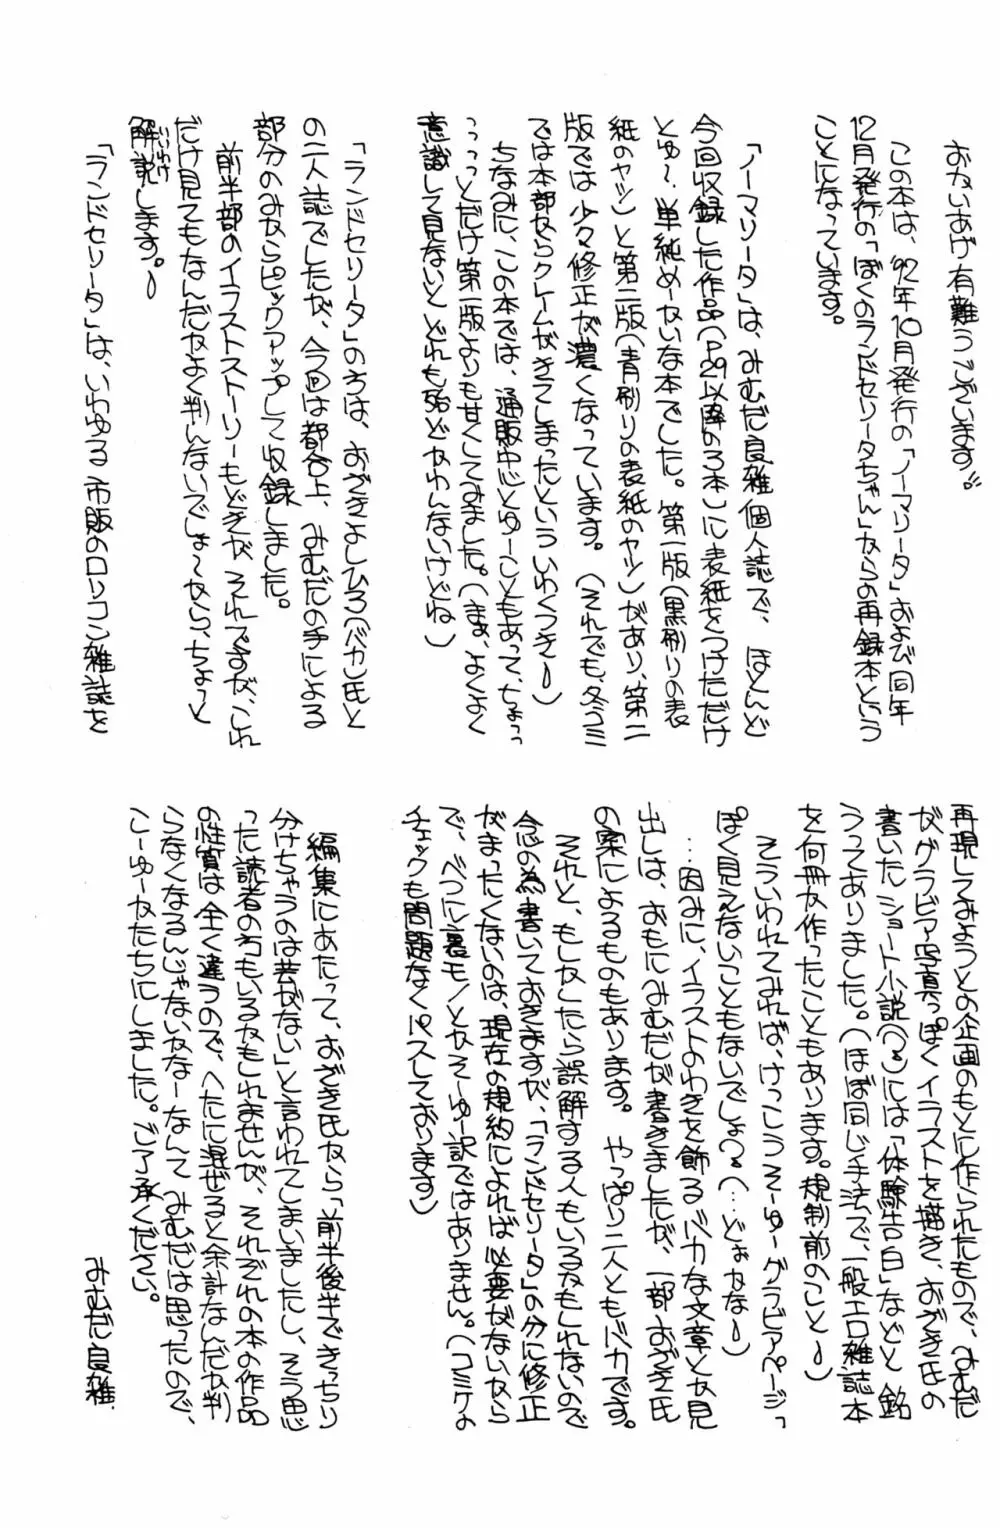 おかいあげ有難うございます。
この本は、'92年10月発行の「ノーマリータ」および同年
12月発行の「ぼくのランドセリータちゃん」からの再録本という
ことになっています。
「ノーマリータ」は、みむだ良雑個人誌で、ほとんど
今回収録した作品(P29以降の3本)に表紙をつけただけ
とゆ〜、単純めーかいな本でした。第一版(黒刷りの表
紙のヤツ)と第二版(青刷りの表紙のヤツ)があり、第二
版では少々修正が濃くなっています。(それでも、冬コミ
では本部からクレームがきてしまったといういわくつき)
ちなみに、この本では、通販中心とゆーこともあって、ちょっ
っっっとだけ第一版よりも甘くしてみました。(まぁ、よくよく
意識して見ないとどれも殆どかわんないけどね)
「ランドセリータ」のろは、おざきよしひろ(バカ)氏と
の二人誌でしたが、今回は都合上、みむだの手による
部分のみからピックアップして収録しました。
前半部のイラストストーリーもどきが、それですが、これ
だけ見てもなんだかよく判んないでしょ〜から、ちょっと
解説いいわけします。
「ランドセリータ」は、いわゆる市販のロリコン雑誌を
再現してみようとの企画のもとに作られたもので、みむだ
がグラビア写真っぽくイラストを描き、おざき氏の
書いたショート小説(?)には「体験告白」などと銘
うってありました。(ほぼ同じ手法で、一般エロ雑誌本
を何冊か作ったこともあります。規制前のこと)
そういわれてみれば、けっこうそーゆーグラビアページっ
ぽく見えないこともないでしょ?(…どぉかな)
…因みに、イラストのわきを飾るバカな文章とか見
出しは、おもにみむだが書きましたが、一部おざき氏
の案によるものもあります。やっぱり二人ともバカです。
それと、もしかしたら誤解する人もいるかもしれないので
念の為書いておきますが、「ランドセリータ」の分に修正
がまったくないのは、現在の規約によれば必要がないから
で、べつに裏モノとかそーゆー訳ではありません。(コミケの
チェックも問題なくパスしております)
編集にあたって、おざき氏から「前半後半できっちり
分けちゃうのは芸がない」と言われてしまいましたし、そう思
った読者の方もいるかもしれませんが、それぞれの本の作品
の性質は全く違うので、へたに混ぜると余計なんだか判
らなくなるんじゃないかなーなんてみむだは思ったので、
こーゆーかたちにしました。ご了承ください。
みむだ良雑.